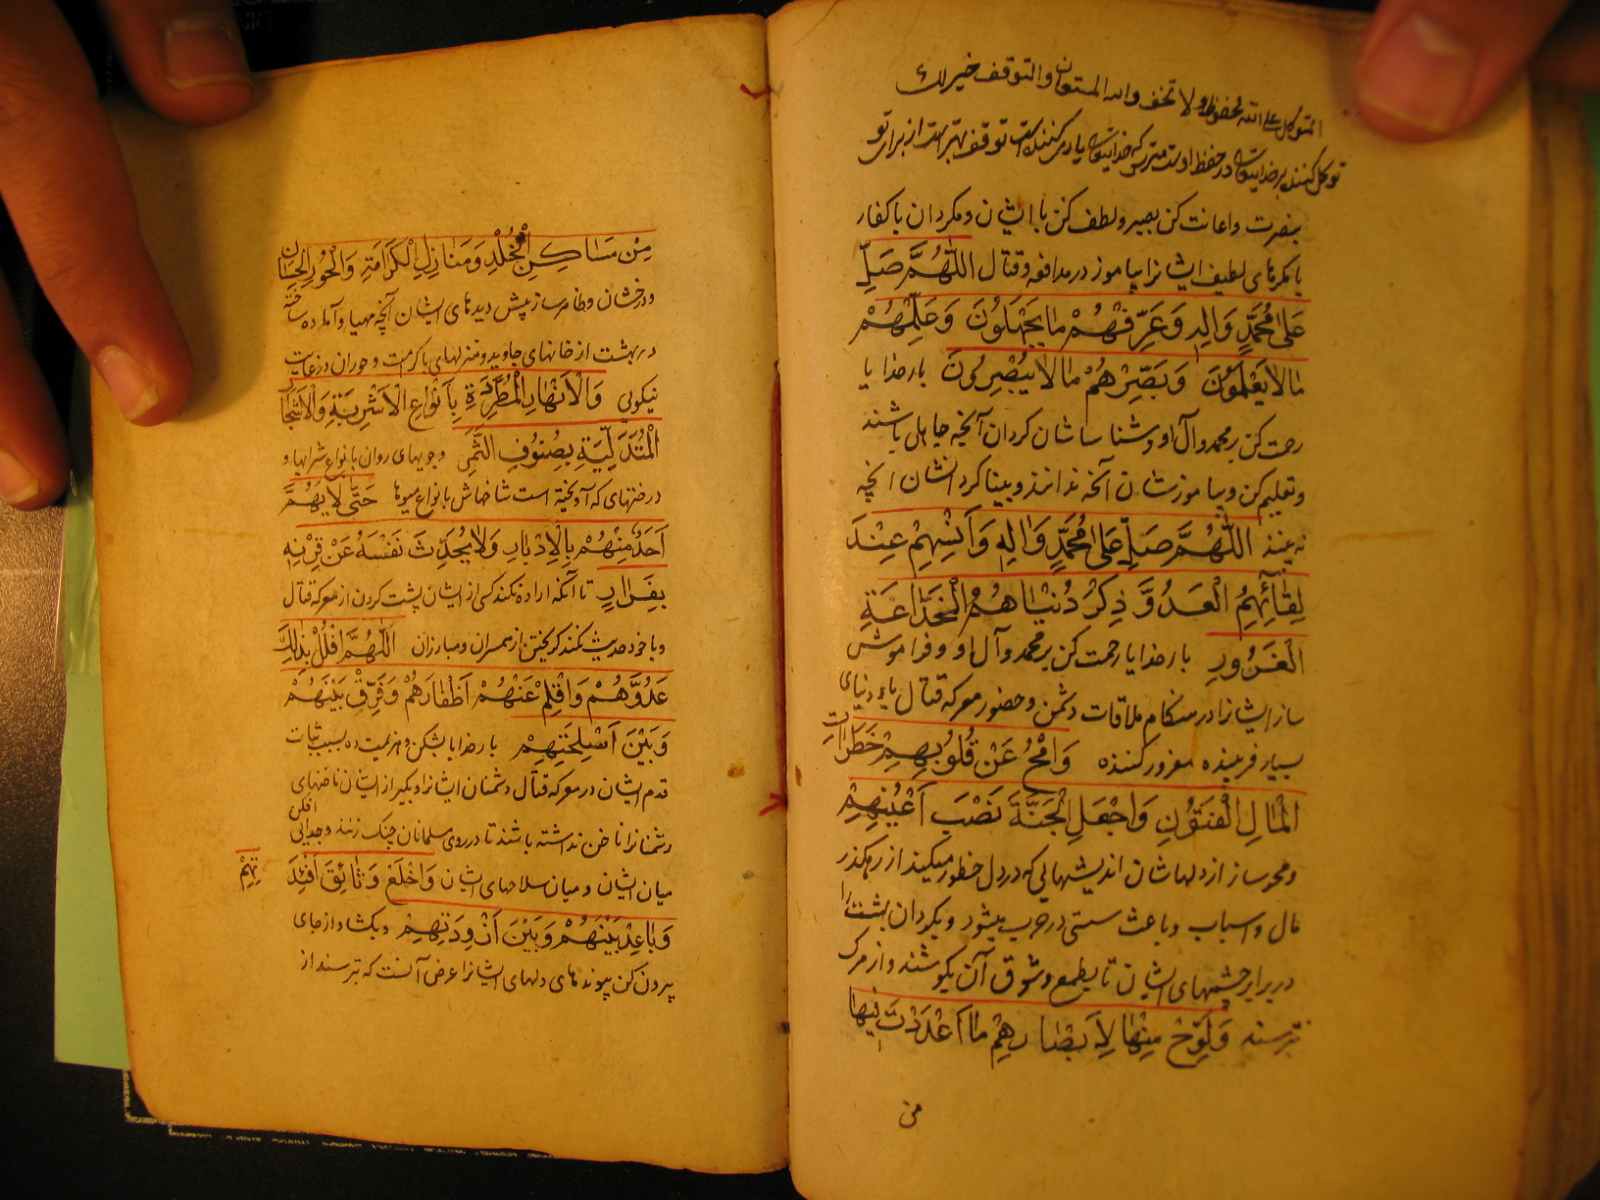 المتوکل علی الله محفوظ ولا تخف والله المستعان والتوقف خیر لک
توکل کننده بر خدایتعالی در حفظ اوست مترس که خدایتعالی یاری کننده است توقف بهتر است از برای تو
بنصرت واعانت کن بصیر ولطف کن با ایشان ومکردان با کفار
یا مکرهای لطیف ایشانرا بیاموز در مدافعه وقتال اللّٰهُمَّ صَلِّ
عَلیٰ مُحَمَّدٍ وَاٰلِهِ وَعَرِّفْهُمْ مٰا یَجْهَلُونَ وَعَلِّمْهُمْ
مٰا لاٰ یَعْلَمُونَ وَبَصِّرْهُمْ مٰا لاٰ یُبْصِرُونَ بار خدایا
رحمت کن بر محمد وآل او وشناسا شان کردان آنچه جاهل باشند
وتعلیم کن وبیاموز شان آنچه ندانند وبینا کردانشان آنچه
نه بینند اللّٰهُمَّ صَلِّ عَلیٰ مُحَمَّدٍ وَاٰلِهِ وَاَنْسِهِمْ عِنْدَ
لِقٰآئِهِمُ الْعَدُوَّ ذِکْرَ دُنْیٰاهُمُ الْخَدّٰاعَةِ
الْغَرُورِ بار خدایا رحمت کن بر محمد وآل او وفراموش
ساز ایشانرا در هنکام ملاقات دشمن وحضور معرکه قتال یاد دنیای
بسیار فریبنده مغرور کننده وَامْحُ عَنْ قُلُوبِهِمْ خَطَرٰاتِ
الْمٰالِ الْفَتُونِ وَاجْعَلِ الْجَنَّةَ نَصْبَ اَعْیُنِهِمْ
ومحو ساز از دلهاشان اندیشهائی که در دل خطور میکند از رهکذر
مال واسباب وباعث سستی در حرب میشود وبکردان بهشت را
در برابر چشمهای ایشان تا بطمع وشوق آن بکوشند واز مرک
نترسند وَلَوِّحْ مِنْهٰا لِاَبْصٰارِهِمْ مٰا اَعْدَدْتَ فِیهٰا
من
مِنْ مَسٰاکِنِ الْخُلْدِ وَمَنٰازِلِ الْکَرٰامَةِ وَالْحُورِ الْحِسٰانِ
ودرخشان وظاهر ساز پیش دیدهای ایشان آنچه مهیا وآماده ساخته
در بهشت از خانهای جاوید ومنزلهای با کرامت وحوران در غایت
نیکوئی وَالْاَنْهٰارِ الْمُطَّرِدَةِ بِاَنْوٰاعِ الْاَشْرِبَةِ وَالْاَشْجٰا
الْمُتَدَلِّیَةِ بِصُنُوفِ الثَّمَرِ وجویهای روان بانواع شرابها و
درختهای که آویخته است شاخهاش بانواع میوها حَتّٰی لاٰ یَهُمَّ
اَحَدٌ مِنْهُمْ بِالْاِدْبٰارِ وَلاٰ یُحَدِّثَ نَفْسَهُ عَنْ قِرْنِهِ
بِفِرٰارٍ تا آنکه اراده نکند کسی از ایشان پشت کردن از معرکه قتال
وبا خود حدیث نکند کریختن از همسران ومبارزان اللّٰهُمَّ افْلُلْ بِذٰلِکَ
عَدُوَّهُمْ وَاقْلِمْ عَنْهُمْ اَظْفٰارَهُمْ وَفَرِّقْ بَیْنَهُمْ
وَبَیْنَ اَسْلِحَتِهِمْ بار خدایا بشکن وهزیمت ده بسبب ثبات
قدم ایشان در معرکه قتال دشمنان ایشانرا وبکیر از ایشان ناخنهای
دشمنانرا تا ناخن نداشته باشند تا در روی مسلمانان چنک زنند وجدائی افکن
میان ایشان ومیان سلاحهای ایشان وَاخْلَعْ وَثٰائِقَ اَفْئِدَ
تِهِمْ
وَبٰاعِدْ بَیْنَهُمْ وَبَیْنَ اَزْوِدَتِهِمْ وبکشا واز جای
بیرون کن پیوندهای دلهای ایشانرا غرض آنست که بترسند از